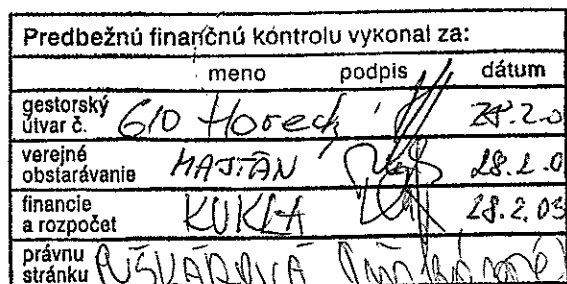 Predbežnú finančnú kontrolu vykonal za:
meno podpis dátum
gestorský útvar č. 610 Horecký 28.2.0
verejné obstarávanie MAJTÁN 28.2.0
financie a rozpočet KUKLA 28.2.03
právnu stránku PUŠKÁROVÁ